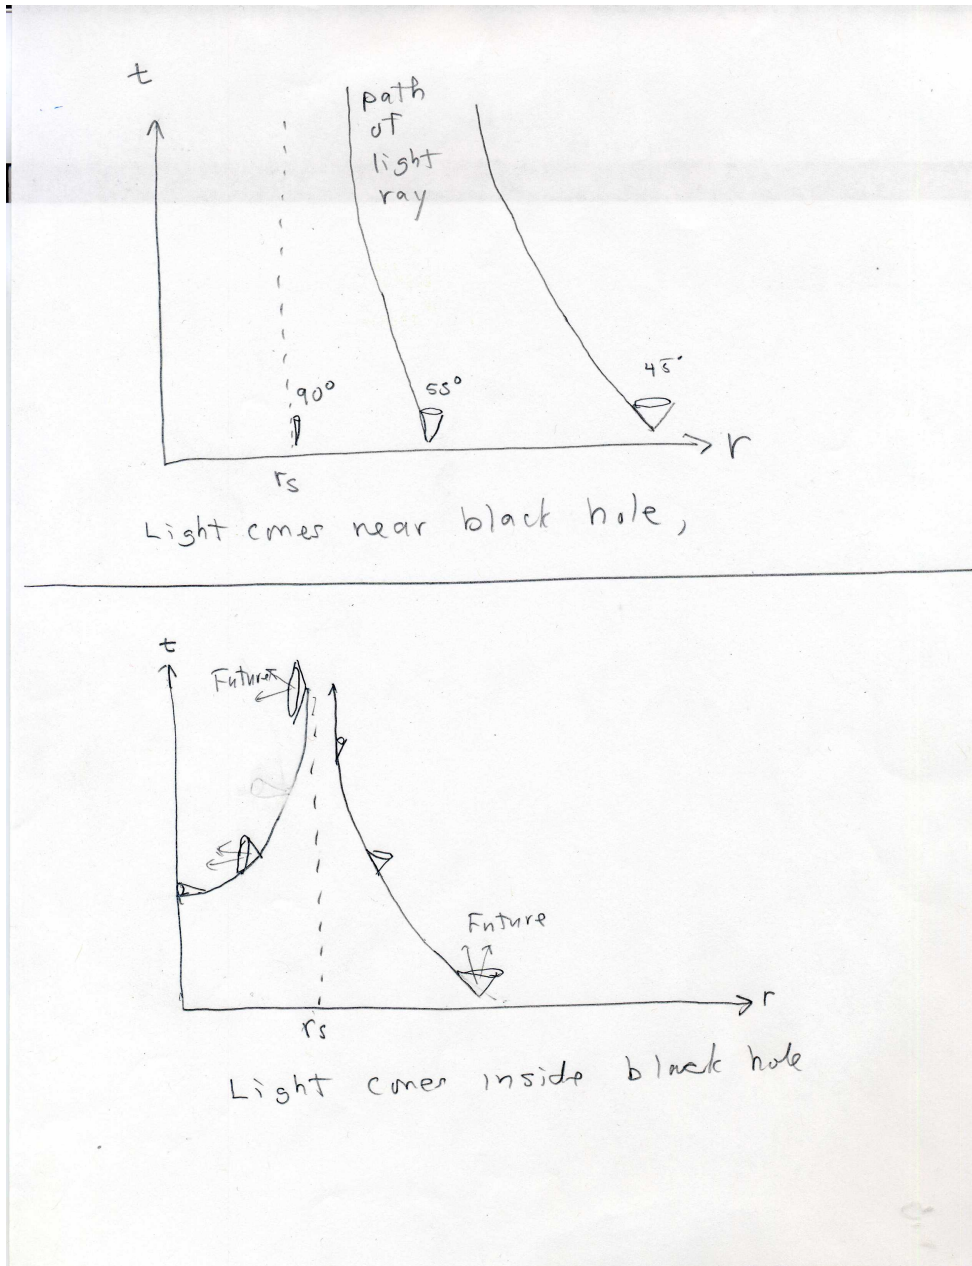 t
path
of
light
ray
45°
55°
90°
r
rs
Light cones near black hole,
t
Future
Future
r
rs
Light cones inside black hole